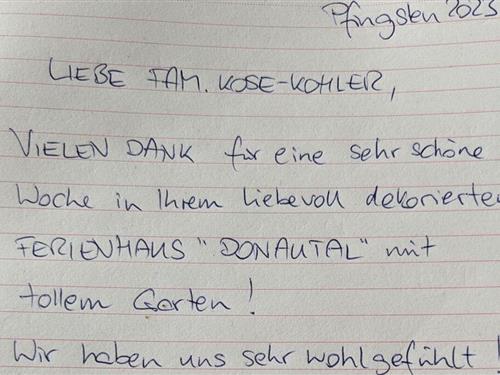 Pfingsten 2023
LIEBE FAM. KOSE-KOHLER,
VIELEN DANK für eine sehr schöne
Woche in Ihrem liebevoll dekorierten
FERIENHAUS "DONAUTAL" mit
tollem Garten!
Wir haben uns sehr wohlgefühlt!